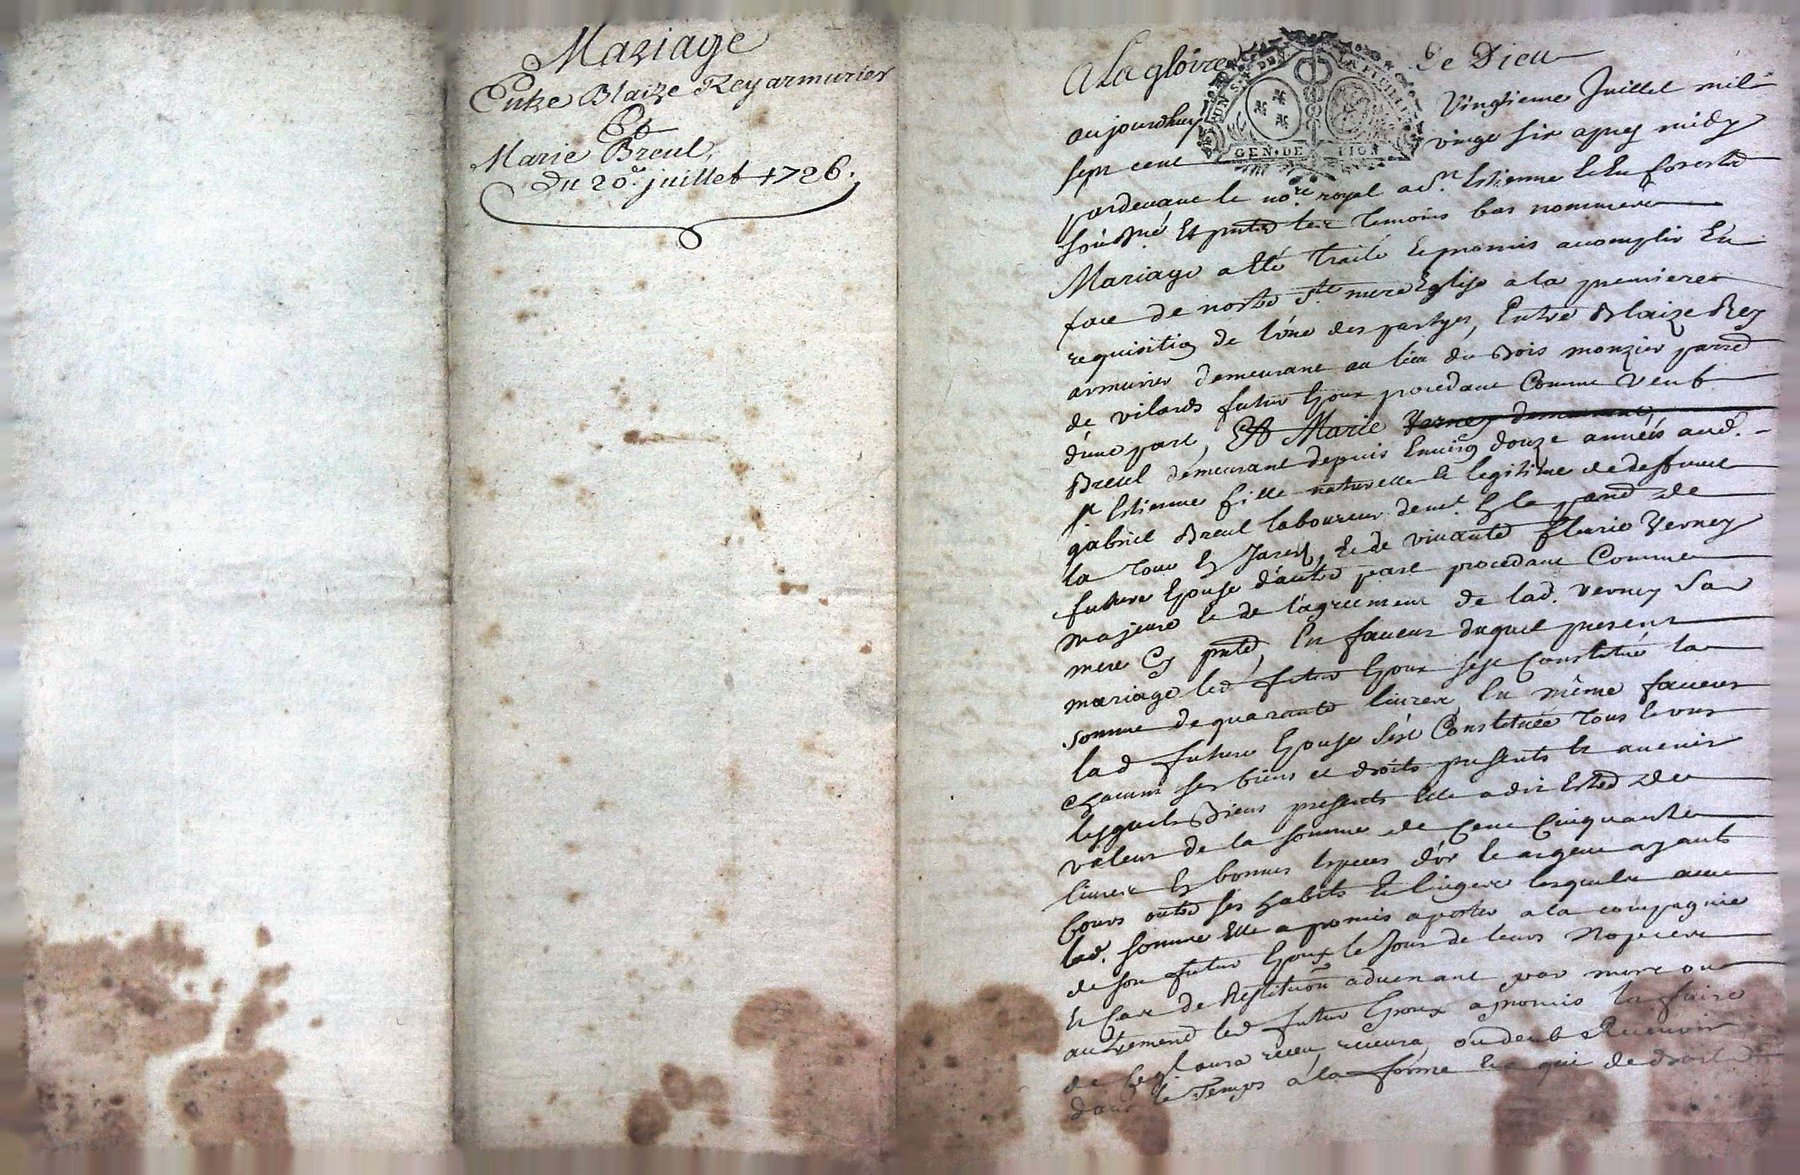 Mariage
Entre Blaize Rey armurier
Et
Marie Breul,
Du 20e. juillet 1726.
A la gloire de Dieu
aujourdhuy vingtieme Juillet mil
sept cent vingt six apres midy
pardevant le nore. royal a St. Estienne En forestz
soubsné. Et pntes les temoins bas nommez
Mariage a Eté traité Et promis acomplir En
face de nostre Ste. mere Eglise a la premiere
requisition de l'une des partyes, Entre Blaize Rey
armurier demeurant au lieu du Bois monzier parre
de vilards futur Epoux procedant Comme veuf
d'une part, Et Marie Verney demeurant
Breul demeurant depuis Environ douze années aud.
St. Estienne fille naturelle Et legitime de deffunt
gabriel Breul laboureur demt. En la parre de
la tour En Jarest, Et de vivante Fleurie Verney
future Epouse d'autre part procedant Comme
majeure Et de l'agreement de lad. Verney Sa
mere Cy pnte, En faveur duquel present
mariage led. futur Epoux s'est Constitué la
somme de quarante livres, En même faveur
lad. future Epouse s'est Constituée tous Et uns
Chacuns ses biens et droits presents Et avenir
lesquels Biens presents Elle a dit Estre de
valeur de la somme de Cent Cinquante
livres En bonnes Especes d'or Et argent ayants
Cours outre ses habits Et linges lesquels avec
lad. somme Elle a promis aporter a la compagnie
de son futur Epoux le Jour de leurs Nopces
Et Cas de Restitution advenant par mort ou
autrement led. futur Epoux a promis la faire
de Ce qu'il aura receu, recevra ou deub Recevoir
dans le Temps a la forme Et a qui de droit